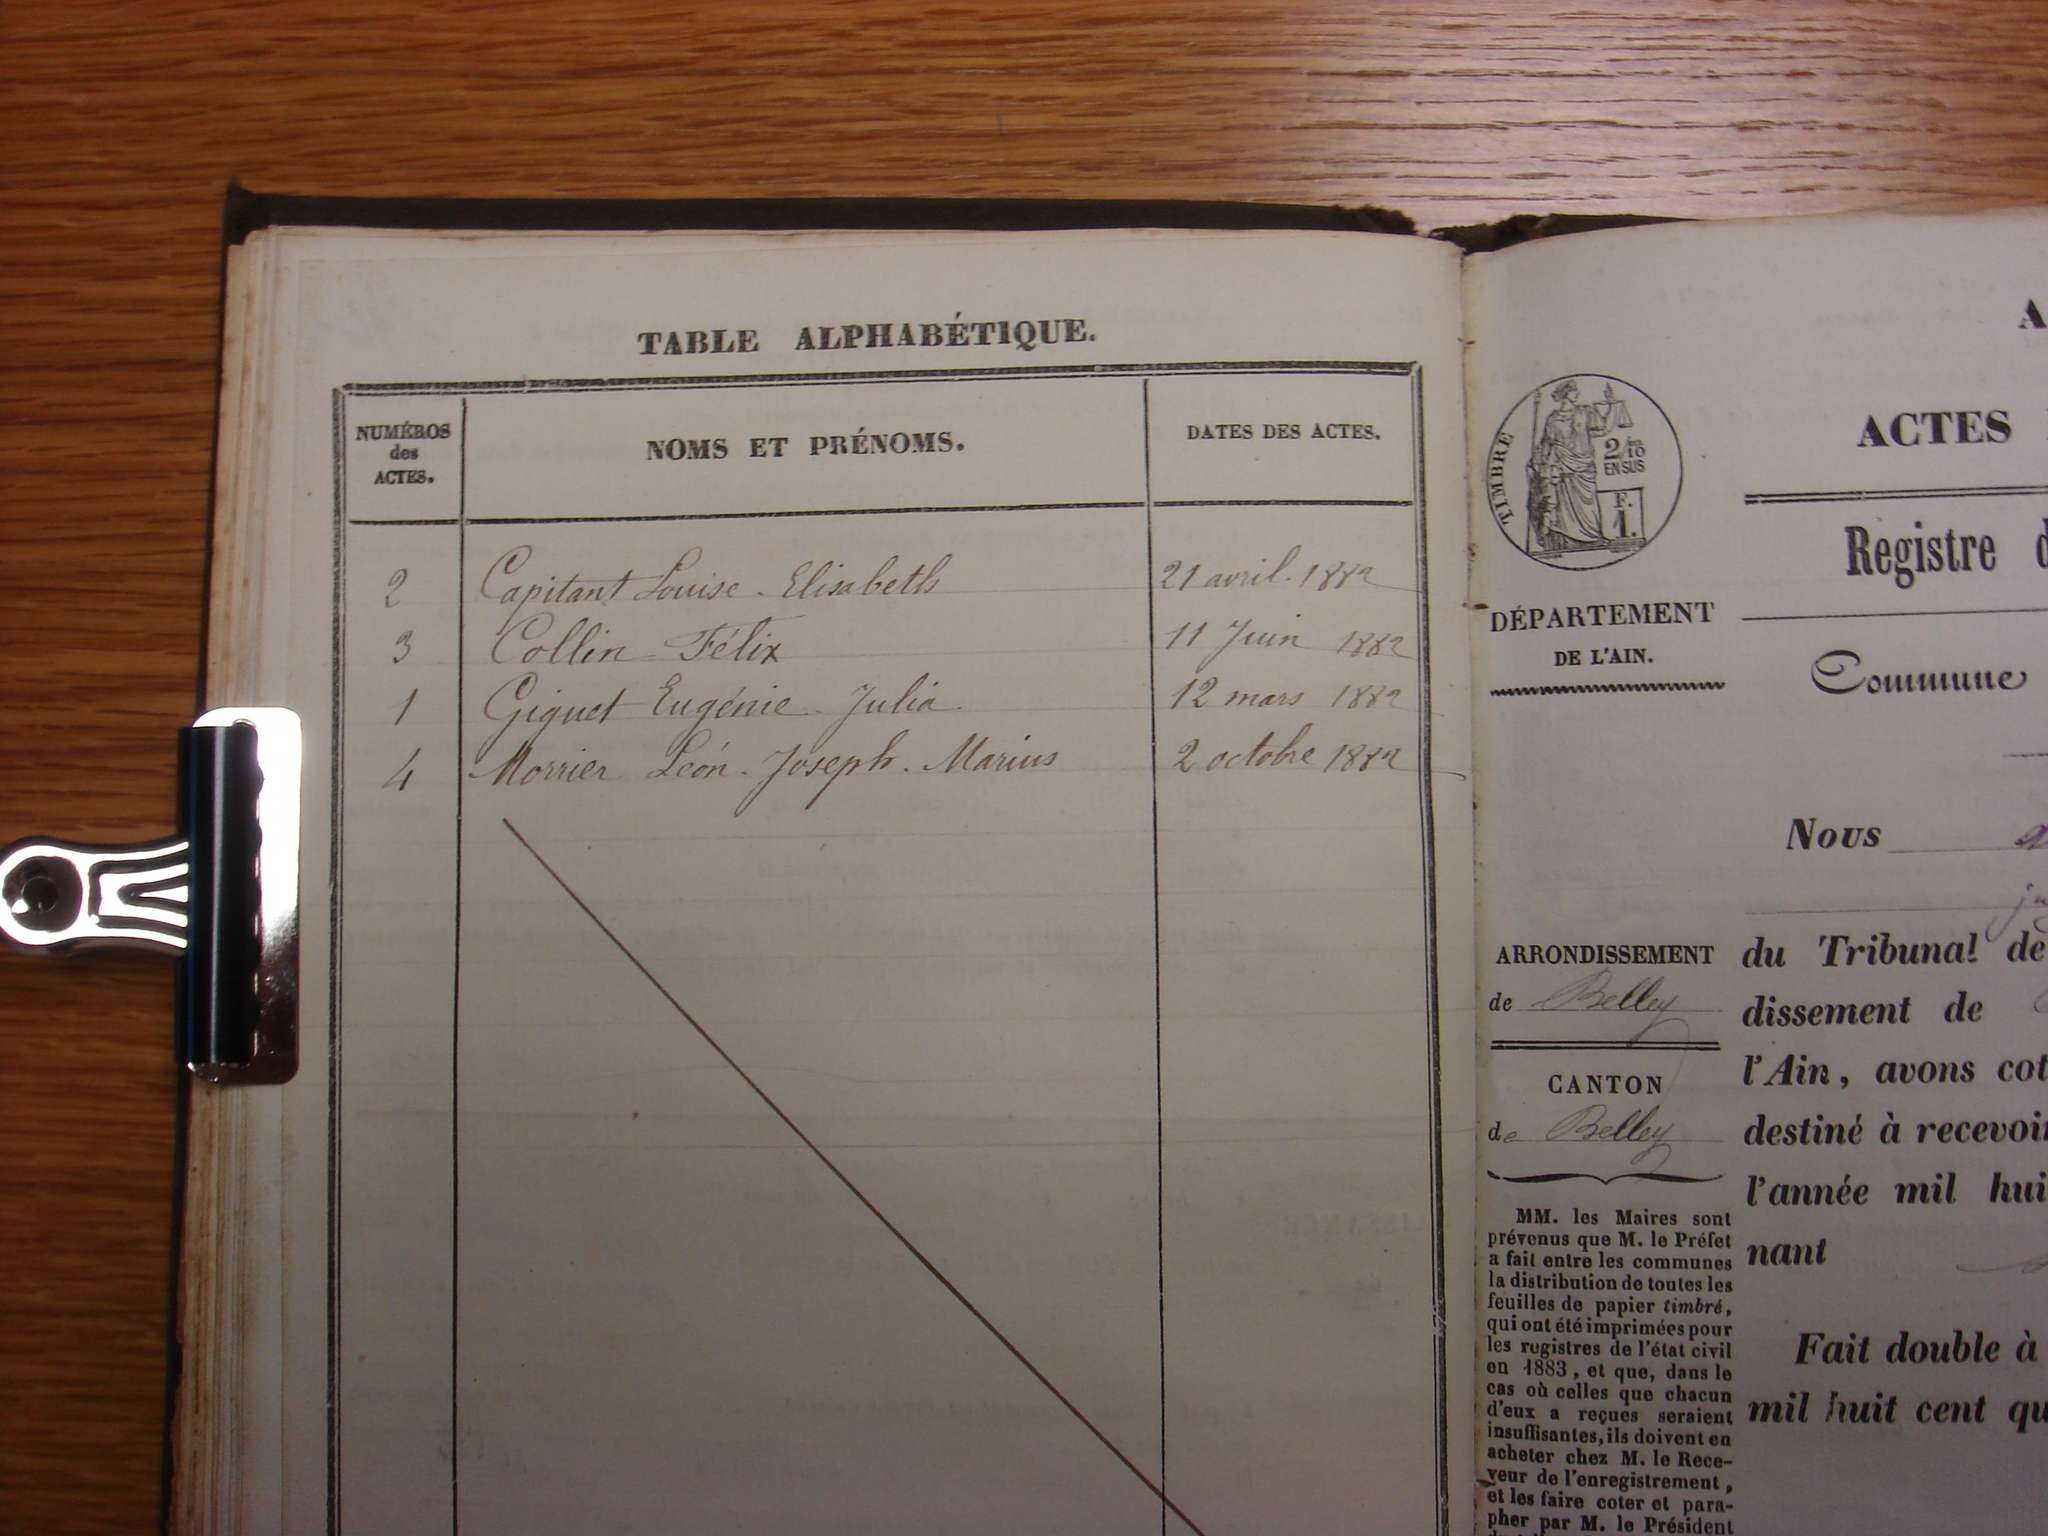 TABLE ALPHABÉTIQUE.
NUMÉROS des ACTES. NOMS ET PRÉNOMS. DATES DES ACTES.
2 Capitant Louise. Elisabeth 21 avril. 1882
3 Collin Félix 11 Juin 1882
1 Giguet Eugénie. Julia. 12 mars 1882
4 Morrier Léon. Joseph. Marius 2 octobre 1882
TIMBRE
2/10
EN SUS
F.
1.
DÉPARTEMENT
DE L'AIN.
ARRONDISSEMENT
de Belley
CANTON
de Belley
MM. les Maires sont
prévenus que M. le Préfet
a fait entre les communes
la distribution de toutes les
feuilles de papier timbré,
qui ont été imprimées pour
les registres de l'état civil
en 1883, et que, dans le
cas où celles que chacun
d'eux a reçues seraient
insuffisantes, ils doivent en
acheter chez M. le Rece-
veur de l'enregistrement,
et les faire coter et para-
pher par M. le Président
A
ACTES
Registre d
Commune
Nous
du Tribunal de
dissement de
l'Ain, avons cot
destiné à recevoir
l'année mil hui
nant
Fait double à
mil huit cent qu